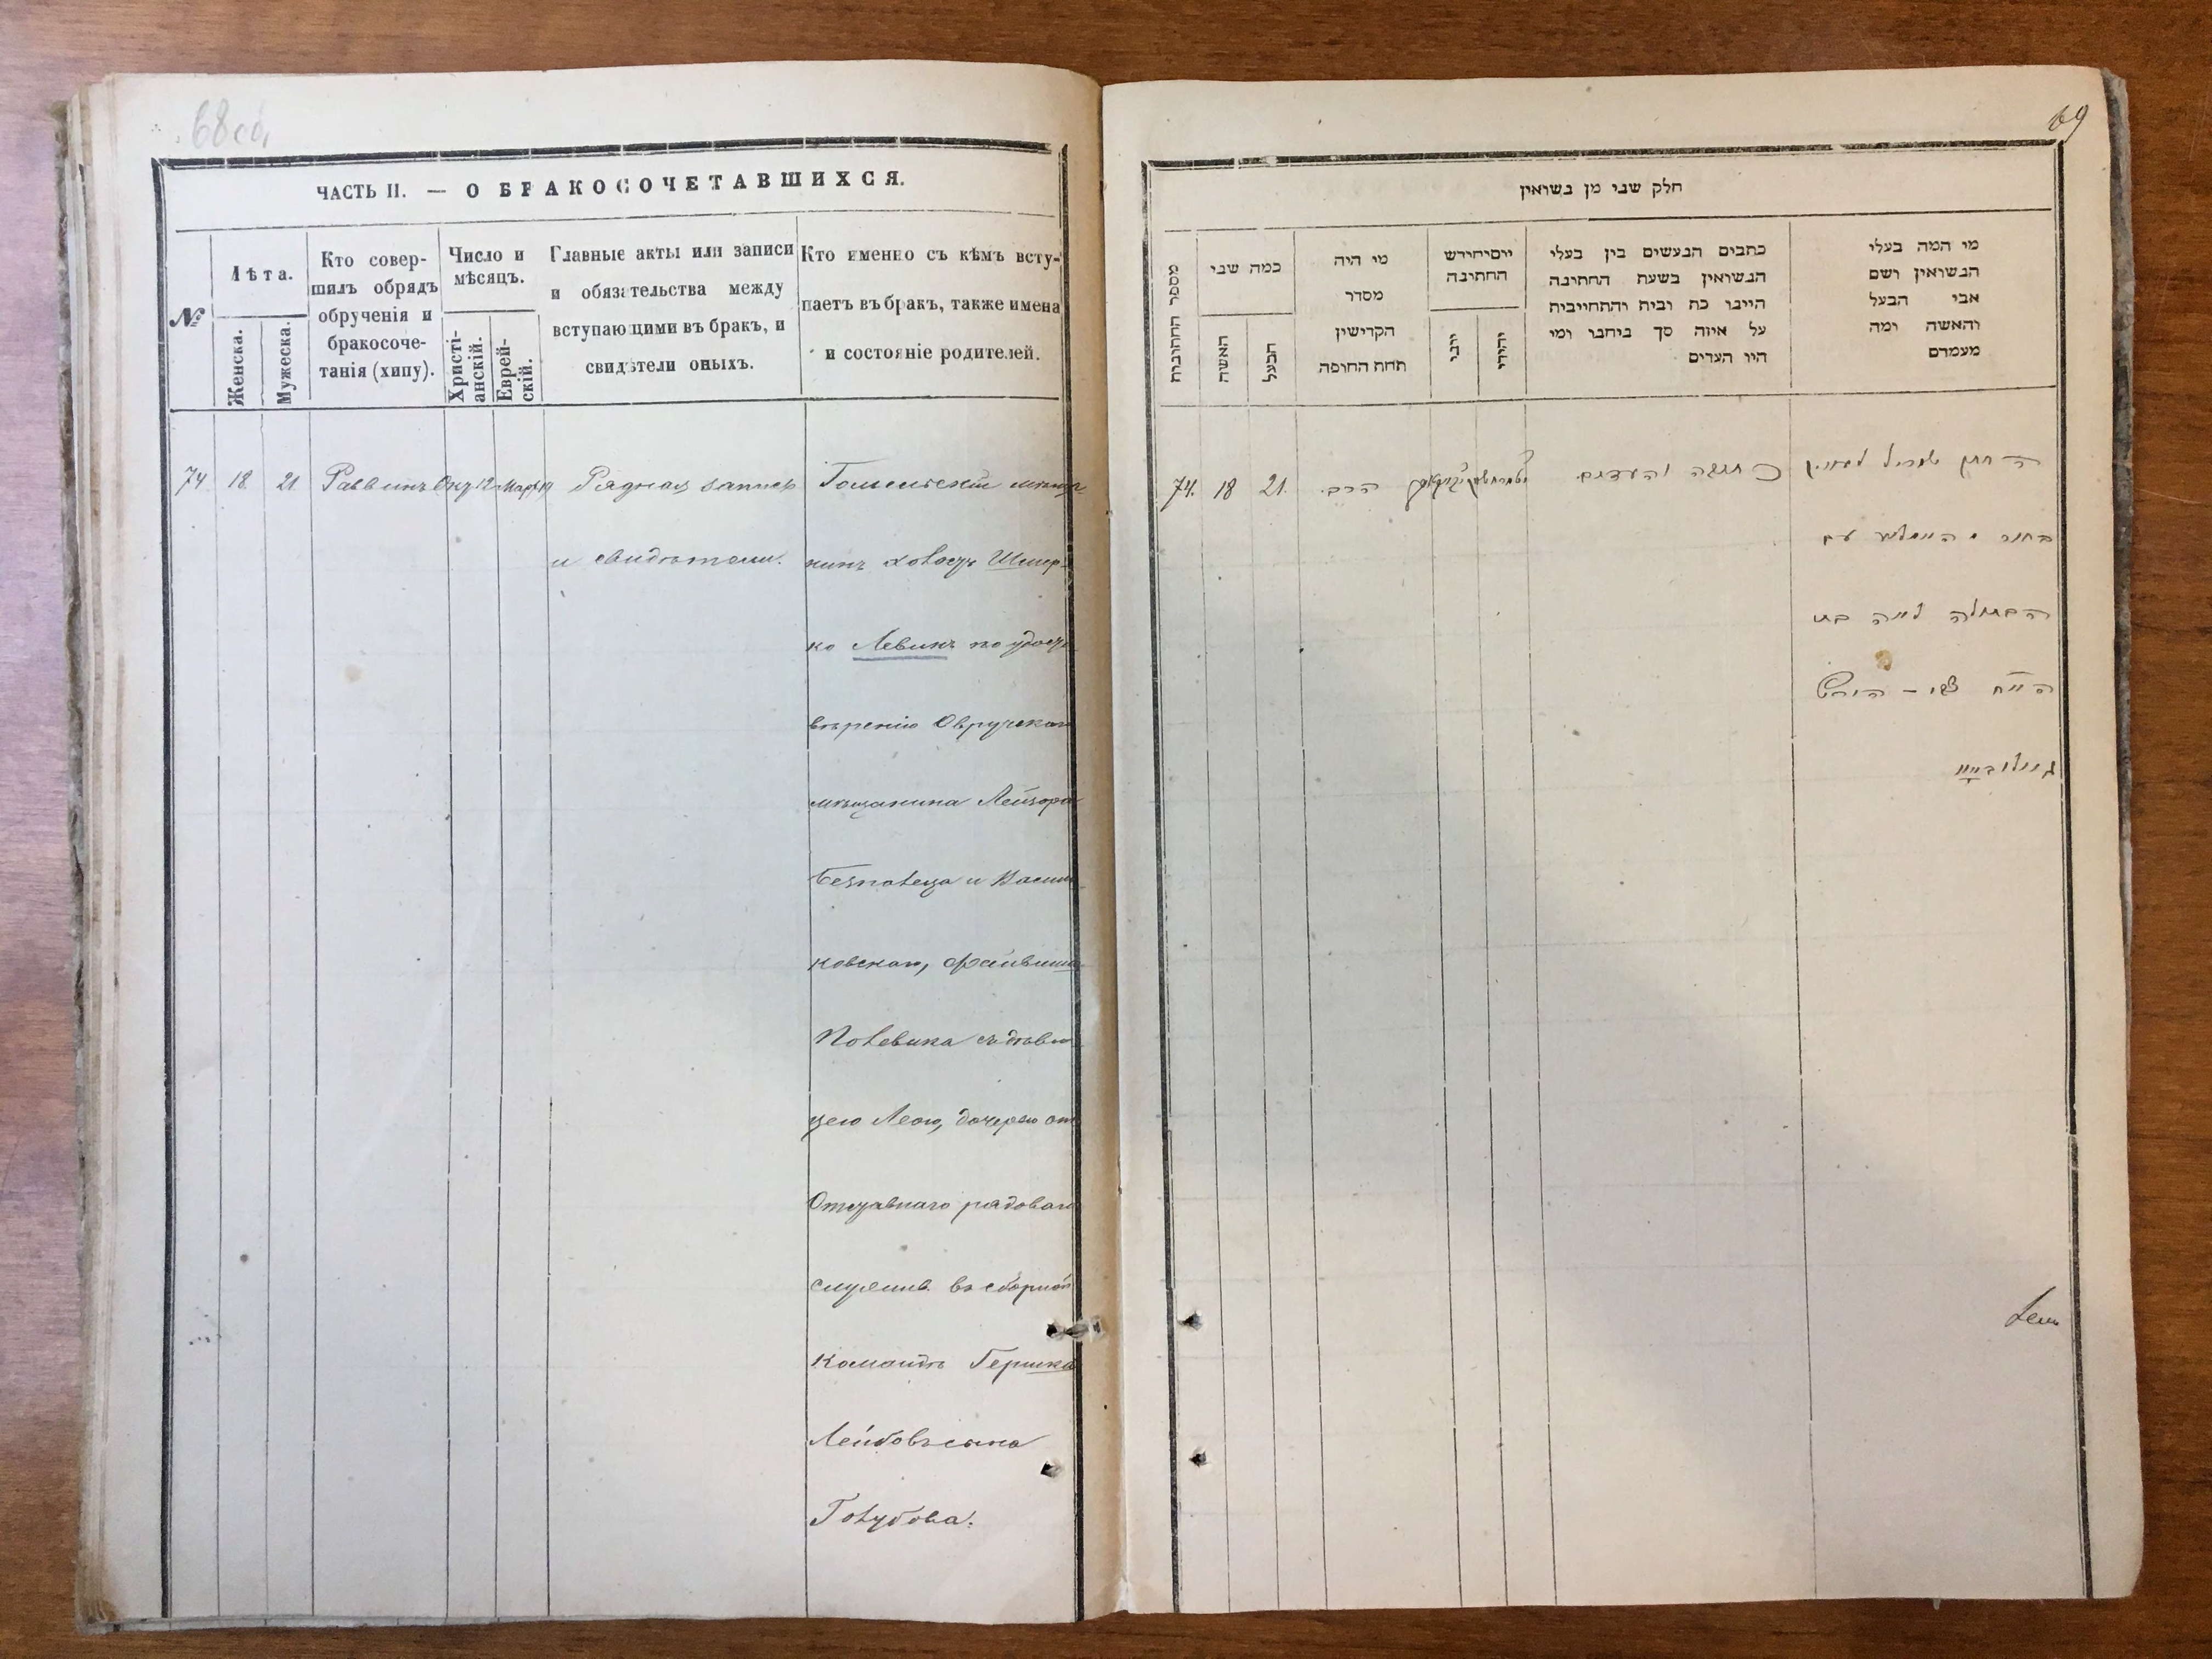 68 об.
ЧАСТЬ II. — О БРАКОСОЧЕТАВШИХСЯ.
№
Лѣта.
Женска.
Мужеска.
Кто совер-
шилъ обрядъ
обрученія и
бракосоче-
танія (хипу).
Число и
мѣсяцъ.
Христі-
анскій.
Еврей-
скій.
Главные акты или записи
и обязательства между
вступающими въ бракъ, и
свидѣтели оныхъ.
Кто именно съ кѣмъ всту-
паетъ въ бракъ, также имена
и состояніе родителей.
74 18. 21. Раввинъ Окт 12 19 Рядная запись Гомельскій
и свидѣтели.
нинъ холостъ Шмер-
ко Левинъ по удост
вѣренію Овручскаго
мѣщанина Лейзора
и Васил
ковскаго, Файвиша
Полевика съ дѣви
цею Леею, дочерью
Отставнаго рядоваго
служив. въ сборной
командѣ Гершка
Лейбова сына
Голубова.
69
חלק שני מן נשואין
מספר החתונות
כמה שני
האשה
הבעל
מי היה
מסדר
הקדישין
תחת החופה
יום וחידש
החתונה
יוני
יהודי
כתבים הנעשים בין בעלי
הנשואין בשעת החתונה
היינו כת ובית והתחייבית
על איזה סך ניתנו ומי
היו העדים
מי המה בעלי
הנשואין ושם
אבי הבעל
והאשה ומה
מעמדם
74. 18 21. הרב והעדים החתן
בחור עם
הבתולה לאה בת
צבי - הירש